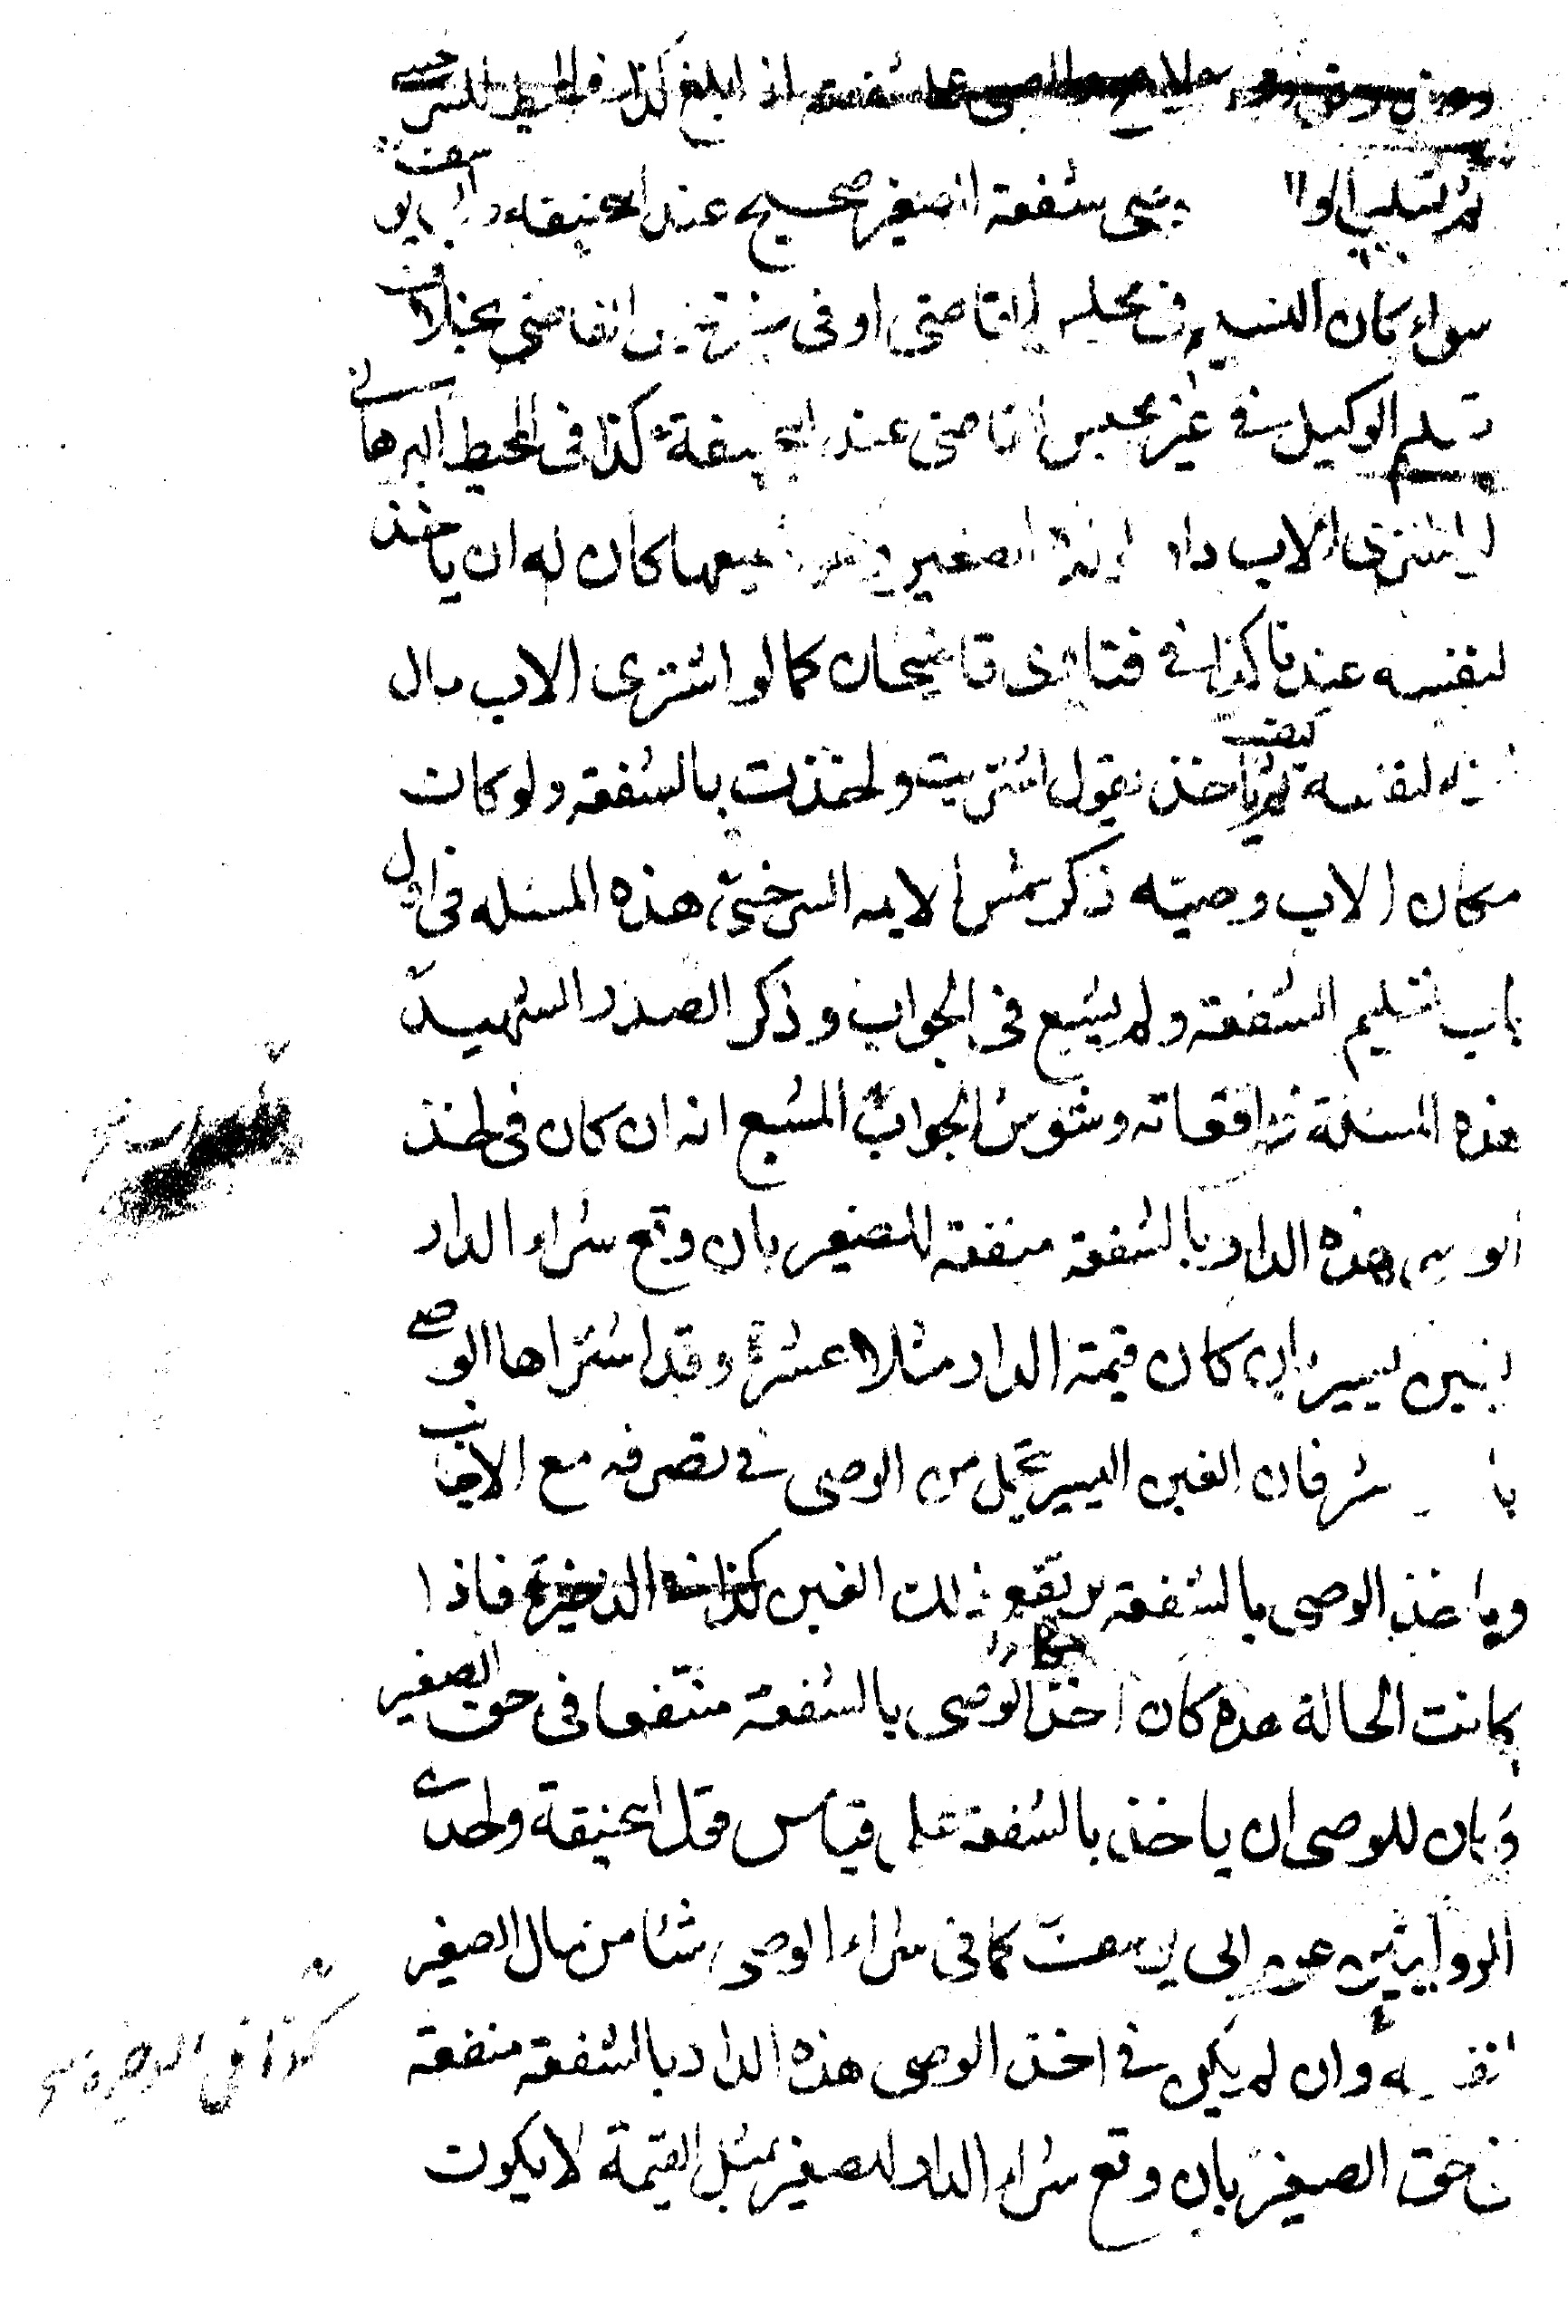 الصبى على شفعته اذا بلغ كذا فى المحيط للسرخسى
ثم تسليم الوصى شفعة الصغير صحيح عند ابحنيفة وابى يوسف
سواء كان التسليم فى مجلس القاضى او فى غير مجلس القاضى بخلاف
تسليم الوكيل فى غير مجلس القاضى عند ابحنيفة كذا فى المحيط البرهانى
اشترى الاب دارا لابنه الصغير وهو شفيعها كان له ان ياخذ
لنفسه عندنا كذا فى فتاوى قاضيخان كما لو اشترى الاب مال
ابنه لنفسه ثم كيف ياخذ يقول اشتريت واخذت بالشفعة ولو كان
مكان الاب وصيه ذكر شمس الايمه السرخسى هذه المسئله فى اول
باب تسليم الشفعة ولم يشبع فى الجواب وذكر الصدر الشهيد
هذه المسئلة فى واقعاته وشوش الجواب المشبع انه ان كان فى اخذ
الوصى هذه الدار بالشفعة منفعة للصغير بان وقع شراء الدار
بغبن يسير بان كان قيمة الدار مثلا عشرة وقد اشتراها الوصى
باحد عشر فان الغبن اليسير يتحمل من الوصى فى تصرفه مع الاجانب
وباخذ الوصى بالشفعة يرتفع ذلك الغبن كذا فى الذخيرة فاذا
كانت الحالة هذه كان اخذ الوصى بالشفعة منتفعا فى حق الصغير
وكان للوصى ان ياخذ بالشفعة على قياس قول ابحنيفة واحدى
الروايتين عن ابى يوسف كما فى شراء الوصى شئا من مال الصغير
لنفسه وان لم يكن فى اخذ الوصى هذه الدار بالشفعة منفعة
فى حق الصغير بان وقع شراء الدار للصغير بمثل القيمة لا يكون
كذا فى الذخيرة